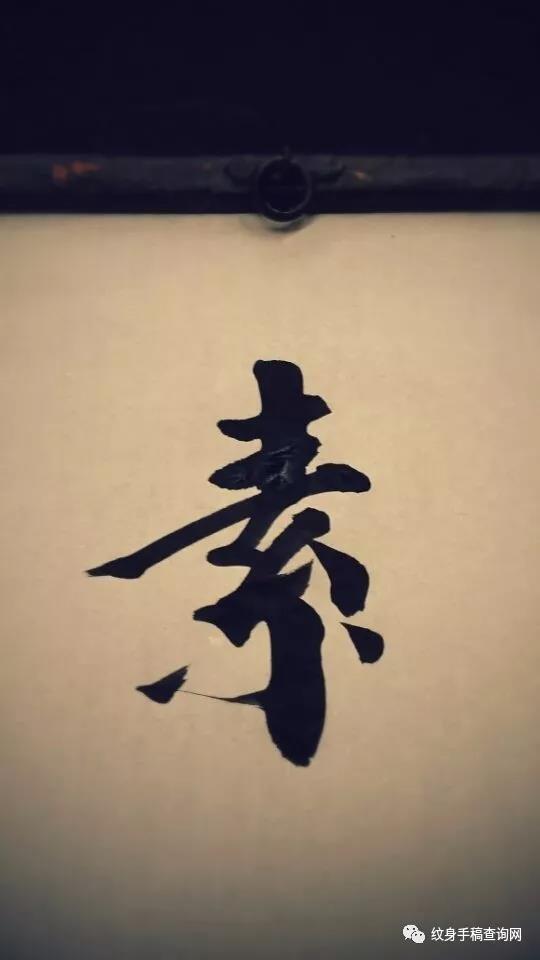 素
纹身手稿查询网